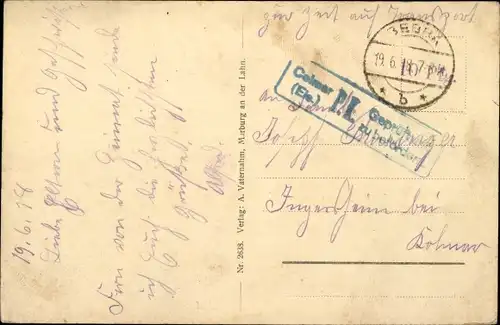 19.6.18
Liebe Eltern und Geschwister
Fern von der Heimat sende
ich Euch die herzlichsten
Grüße
Alfred
Nr. 2638. Verlag: A. Vaternahm, Marburg an der Lahn.
zur Zeit auf Transport
BEBRA
19.6.18. 7-8 N
* b *
Colmar
(Els.)
P.K.
Geprüft
zu befördern
Josef
Ingersheim bei
Kolmar